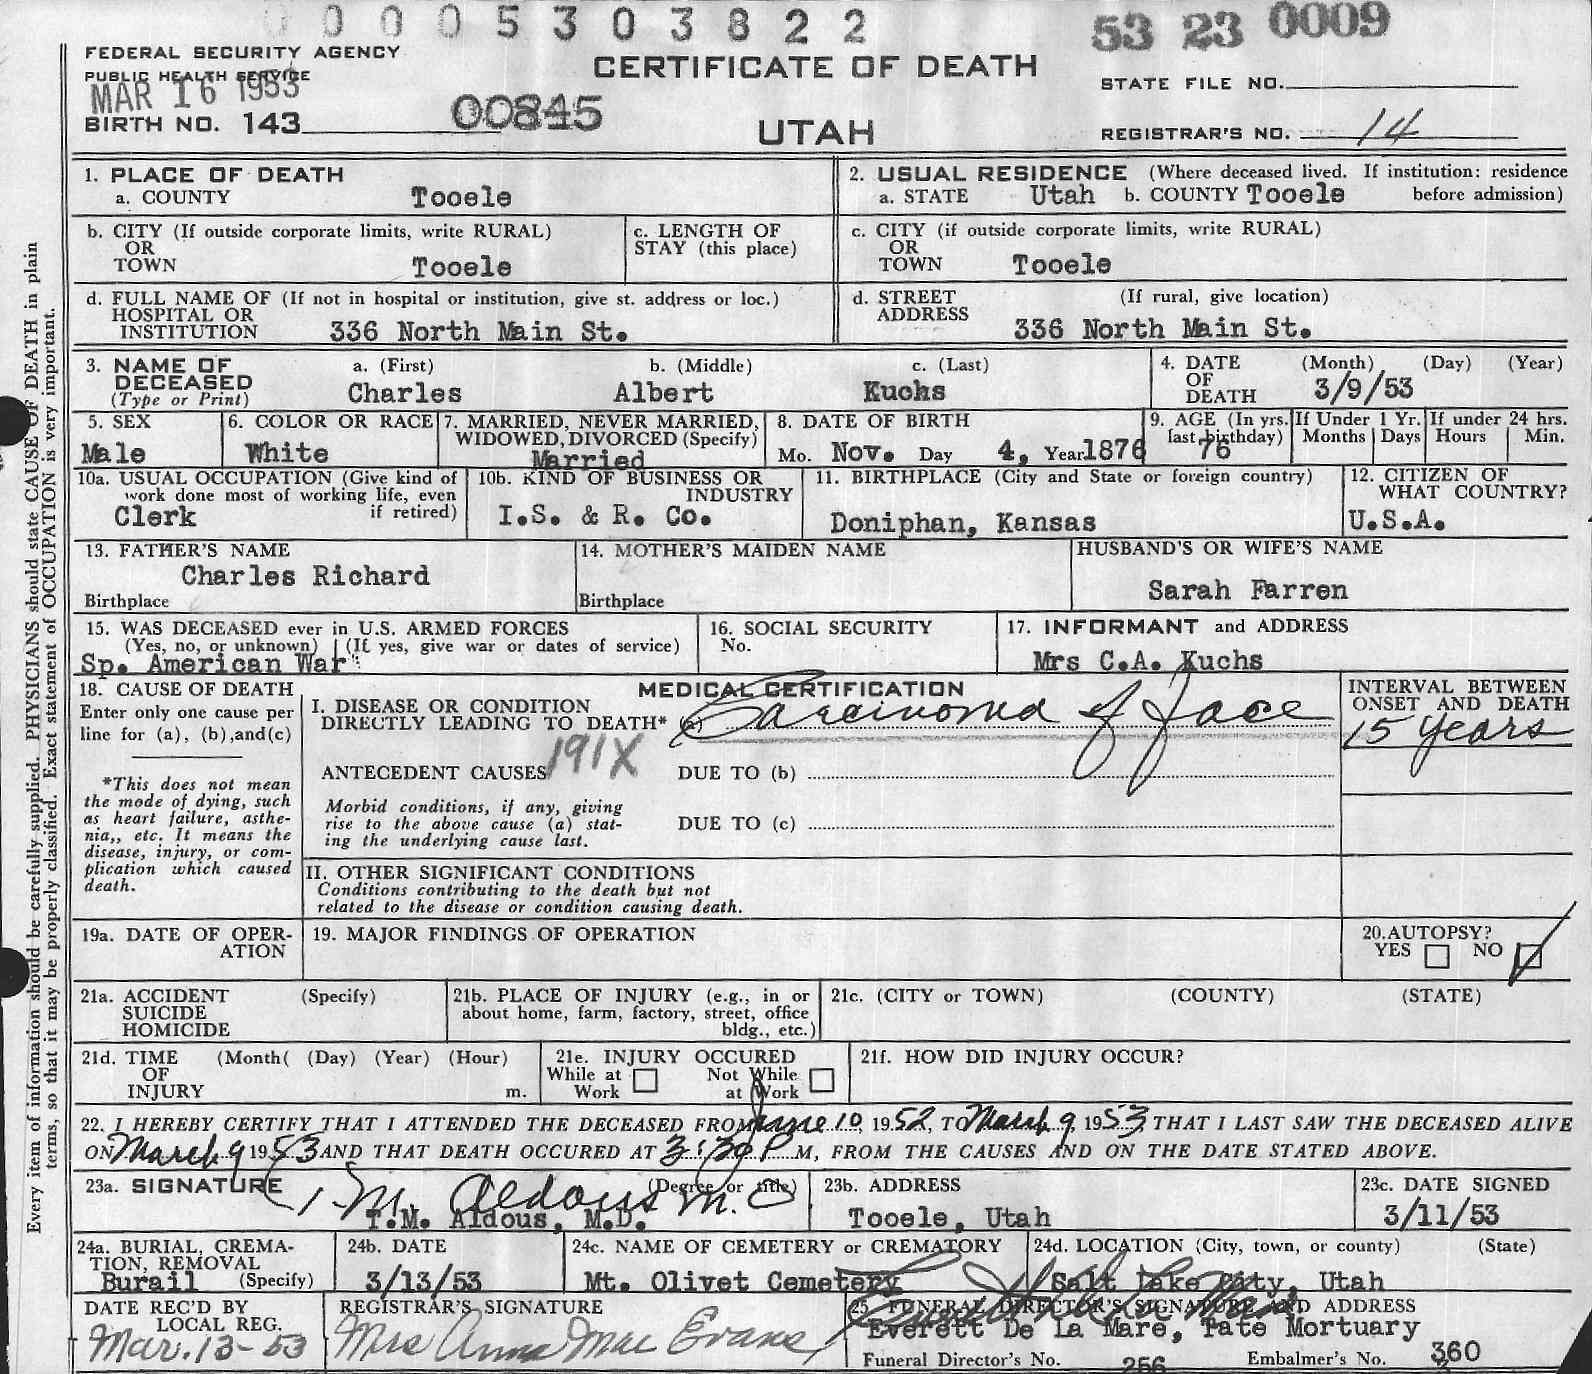 0 0 0 0 5 3 0 3 8 2 2
53 23 0009
FEDERAL SECURITY AGENCY
PUBLIC HEALTH SERVICE
MAR 16 1953
BIRTH NO. 143
00845
CERTIFICATE OF DEATH
UTAH
STATE FILE NO.
REGISTRAR'S NO. 14
Every item of information should be carefully supplied. PHYSICIANS should state CAUSE OF DEATH in plain
terms, so that it may be properly classified. Exact statement of OCCUPATION is very important.
1. PLACE OF DEATH
a. COUNTY Tooele
2. USUAL RESIDENCE (Where deceased lived. If institution: residence
a. STATE Utah b. COUNTY Tooele before admission)
b. CITY (If outside corporate limits, write RURAL)
OR
TOWN Tooele
c. LENGTH OF
STAY (this place)
c. CITY (if outside corporate limits, write RURAL)
OR
TOWN Tooele
d. FULL NAME OF (If not in hospital or institution, give st. address or loc.)
HOSPITAL OR
INSTITUTION 336 North Main St.
d. STREET (If rural, give location)
ADDRESS
336 North Main St.
3. NAME OF DECEASED
(Type or Print)
a. (First) b. (Middle) c. (Last)
Charles Albert Kuchs
4. DATE OF DEATH (Month) (Day) (Year)
3/9/53
5. SEX
Male
6. COLOR OR RACE
White
7. MARRIED, NEVER MARRIED,
WIDOWED, DIVORCED (Specify)
Married
8. DATE OF BIRTH
Mo. Nov. Day 4, Year 1876
9. AGE (In yrs. last birthday)
76
If Under 1 Yr.
Months Days
If under 24 hrs.
Hours Min.
10a. USUAL OCCUPATION (Give kind of
work done most of working life, even
if retired)
Clerk
10b. KIND OF BUSINESS OR
INDUSTRY
I.S. & R. Co.
11. BIRTHPLACE (City and State or foreign country)
Doniphan, Kansas
12. CITIZEN OF
WHAT COUNTRY?
U.S.A.
13. FATHER'S NAME
Charles Richard
Birthplace
14. MOTHER'S MAIDEN NAME
Birthplace
HUSBAND'S OR WIFE'S NAME
Sarah Farren
15. WAS DECEASED ever in U.S. ARMED FORCES
(Yes, no, or unknown) (If yes, give war or dates of service)
Sp. American War
16. SOCIAL SECURITY
No.
17. INFORMANT and ADDRESS
Mrs C.A. Kuchs
18. CAUSE OF DEATH
Enter only one cause per
line for (a), (b),and(c)
*This does not mean
the mode of dying, such
as heart failure, asthe-
nia,, etc. It means the
disease, injury, or com-
plication which caused
death.
MEDICAL CERTIFICATION
I. DISEASE OR CONDITION
DIRECTLY LEADING TO DEATH* (a) Carcinoma of face
191X
ANTECEDENT CAUSES DUE TO (b)
Morbid conditions, if any, giving
rise to the above cause (a) stat-
ing the underlying cause last.
DUE TO (c)
II. OTHER SIGNIFICANT CONDITIONS
Conditions contributing to the death but not
related to the disease or condition causing death.
INTERVAL BETWEEN
ONSET AND DEATH
15 years
19a. DATE OF OPER-
ATION
19. MAJOR FINDINGS OF OPERATION
20.AUTOPSY?
YES NO
21a. ACCIDENT (Specify)
SUICIDE
HOMICIDE
21b. PLACE OF INJURY (e.g., in or
about home, farm, factory, street, office
bldg., etc.)
21c. (CITY or TOWN) (COUNTY) (STATE)
21d. TIME (Month( (Day) (Year) (Hour)
OF
INJURY m.
21e. INJURY OCCURED
While at Not While
Work at Work
21f. HOW DID INJURY OCCUR?
22. I HEREBY CERTIFY THAT I ATTENDED THE DECEASED FROM June 10, 1952, TO March 9, 1953 THAT I LAST SAW THE DECEASED ALIVE
ON March 9 1953 AND THAT DEATH OCCURED AT 3:30 P M, FROM THE CAUSES AND ON THE DATE STATED ABOVE.
23a. SIGNATURE (Degree or title)
T M. Aldous M.D
T.M. Aldous, M.D.
23b. ADDRESS
Tooele, Utah
23c. DATE SIGNED
3/11/53
24a. BURIAL, CREMA-
TION, REMOVAL
Burail (Specify)
24b. DATE
3/13/53
24c. NAME OF CEMETERY or CREMATORY
Mt. Olivet Cemetery
24d. LOCATION (City, town, or county) (State)
Salt Lake City, Utah
DATE REC'D BY
LOCAL REG.
Mar. 13-53
REGISTRAR'S SIGNATURE
Mrs Anna Mae Evans
25. FUNERAL DIRECTOR'S SIGNATURE AND ADDRESS
Everett De La Mare, Tate Mortuary
Funeral Director's No. 256 Embalmer's No. 360